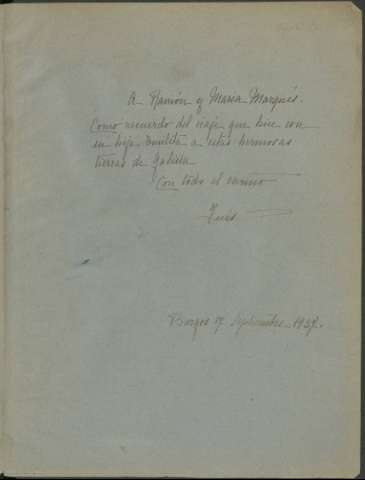 A Ramón y Maria Marqués.
Como recuerdo del viaje que hice con
su hija Emilita a estas hermosas
tierras de Galicia
Con todo el cariño
Burgos 17 Septiembre-1937.-